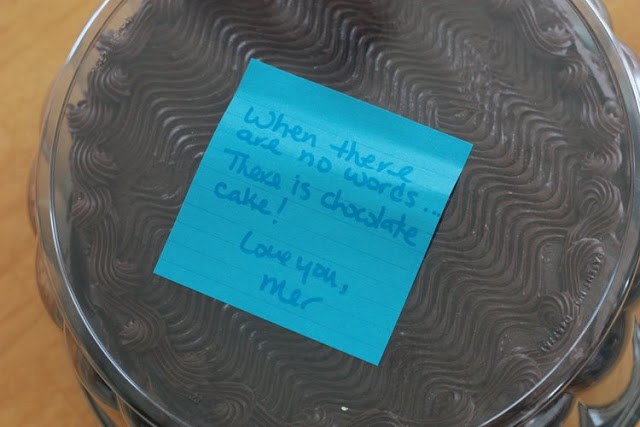 When there
are no words...
There is chocolate
cake!
Love you,
Mer